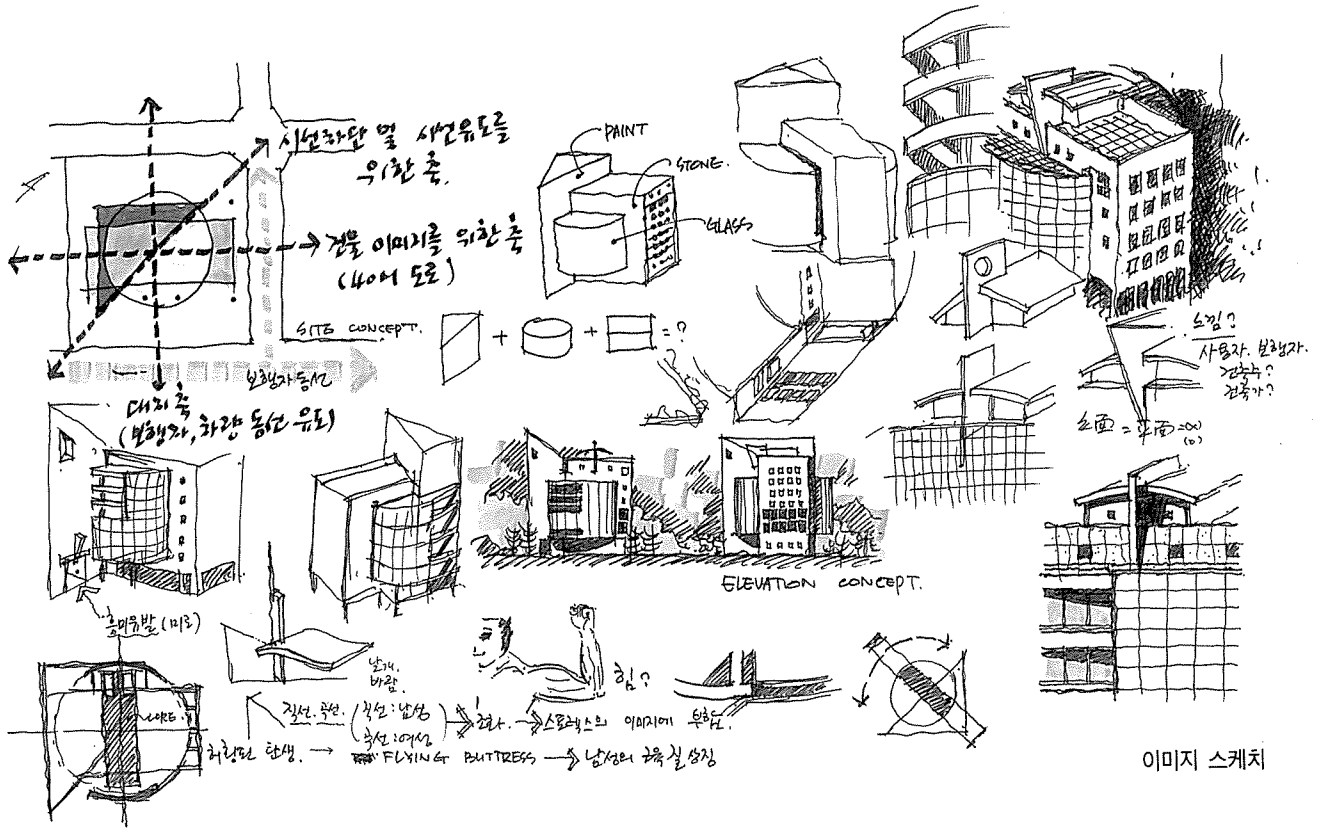 시선차단 및 시선유도를
위한 축.
건물 이미지를 위한 축
(40m 도로)
SITE CONCEPT.
보행자동선
대지축
(보행자, 차량 동선 유도)
PAINT
STONE.
GLASS
+ + = ?
느낌?
사용자. 보행자.
건축주?
건축가?
ELEVATION CONCEPT.
흥미유발 (미로)
날개.
바람.
힘?
CORE.
직선. 곡선. (직선:남성
곡선:여성)
조화. → 스포렉스의 이미지에 부합.
탄생. → FLYING BUTTRESS → 남성의 근육질 상징
이미지 스케치